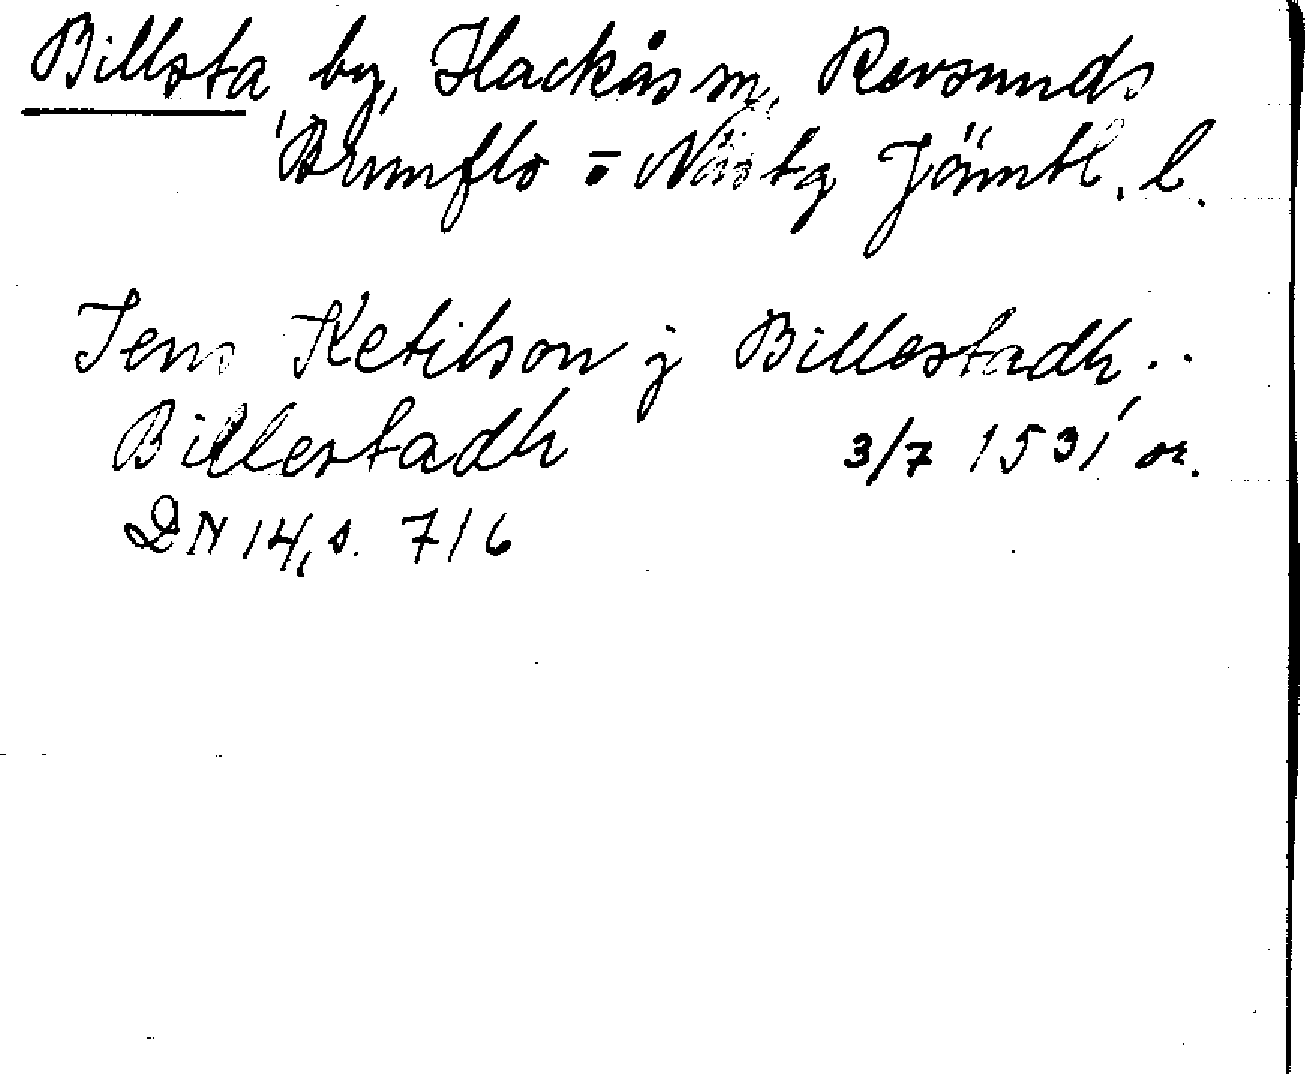 Billsta, by, Hackås sn, Revsunds
Brunflo = Näs tg Jämtl. l.
Jens Ketilson j Billestadh..
Billestadh 3/7 1531 or.
DN 14, s. 716